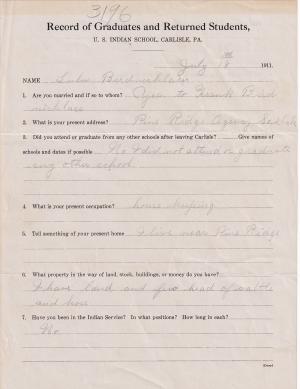 3196
Record of Graduates and Returned Students,
U. S. INDIAN SCHOOL, CARLISLE, PA.
July 18th 1911.
NAME Lulu Birdnecklace
1. Are you married and if so to whom? Yes to Frank Bird
necklace
2. What is your present address? Pine Ridge Agency
3. Did you attend or graduate from any other schools after leaving Carlisle? Give names
of schools and dates if possible No I did not attend or graduate
ing other school
4. What is your present occupation? house keeping
5. Tell something of your present home I live near Pine Ridge
6. What property in the way of land, stock, buildings, or money do you have?
I have land and few head of cattle
and horse
7. Have you been in the Indian Service? In what positions? How long in each?
No
(Over)